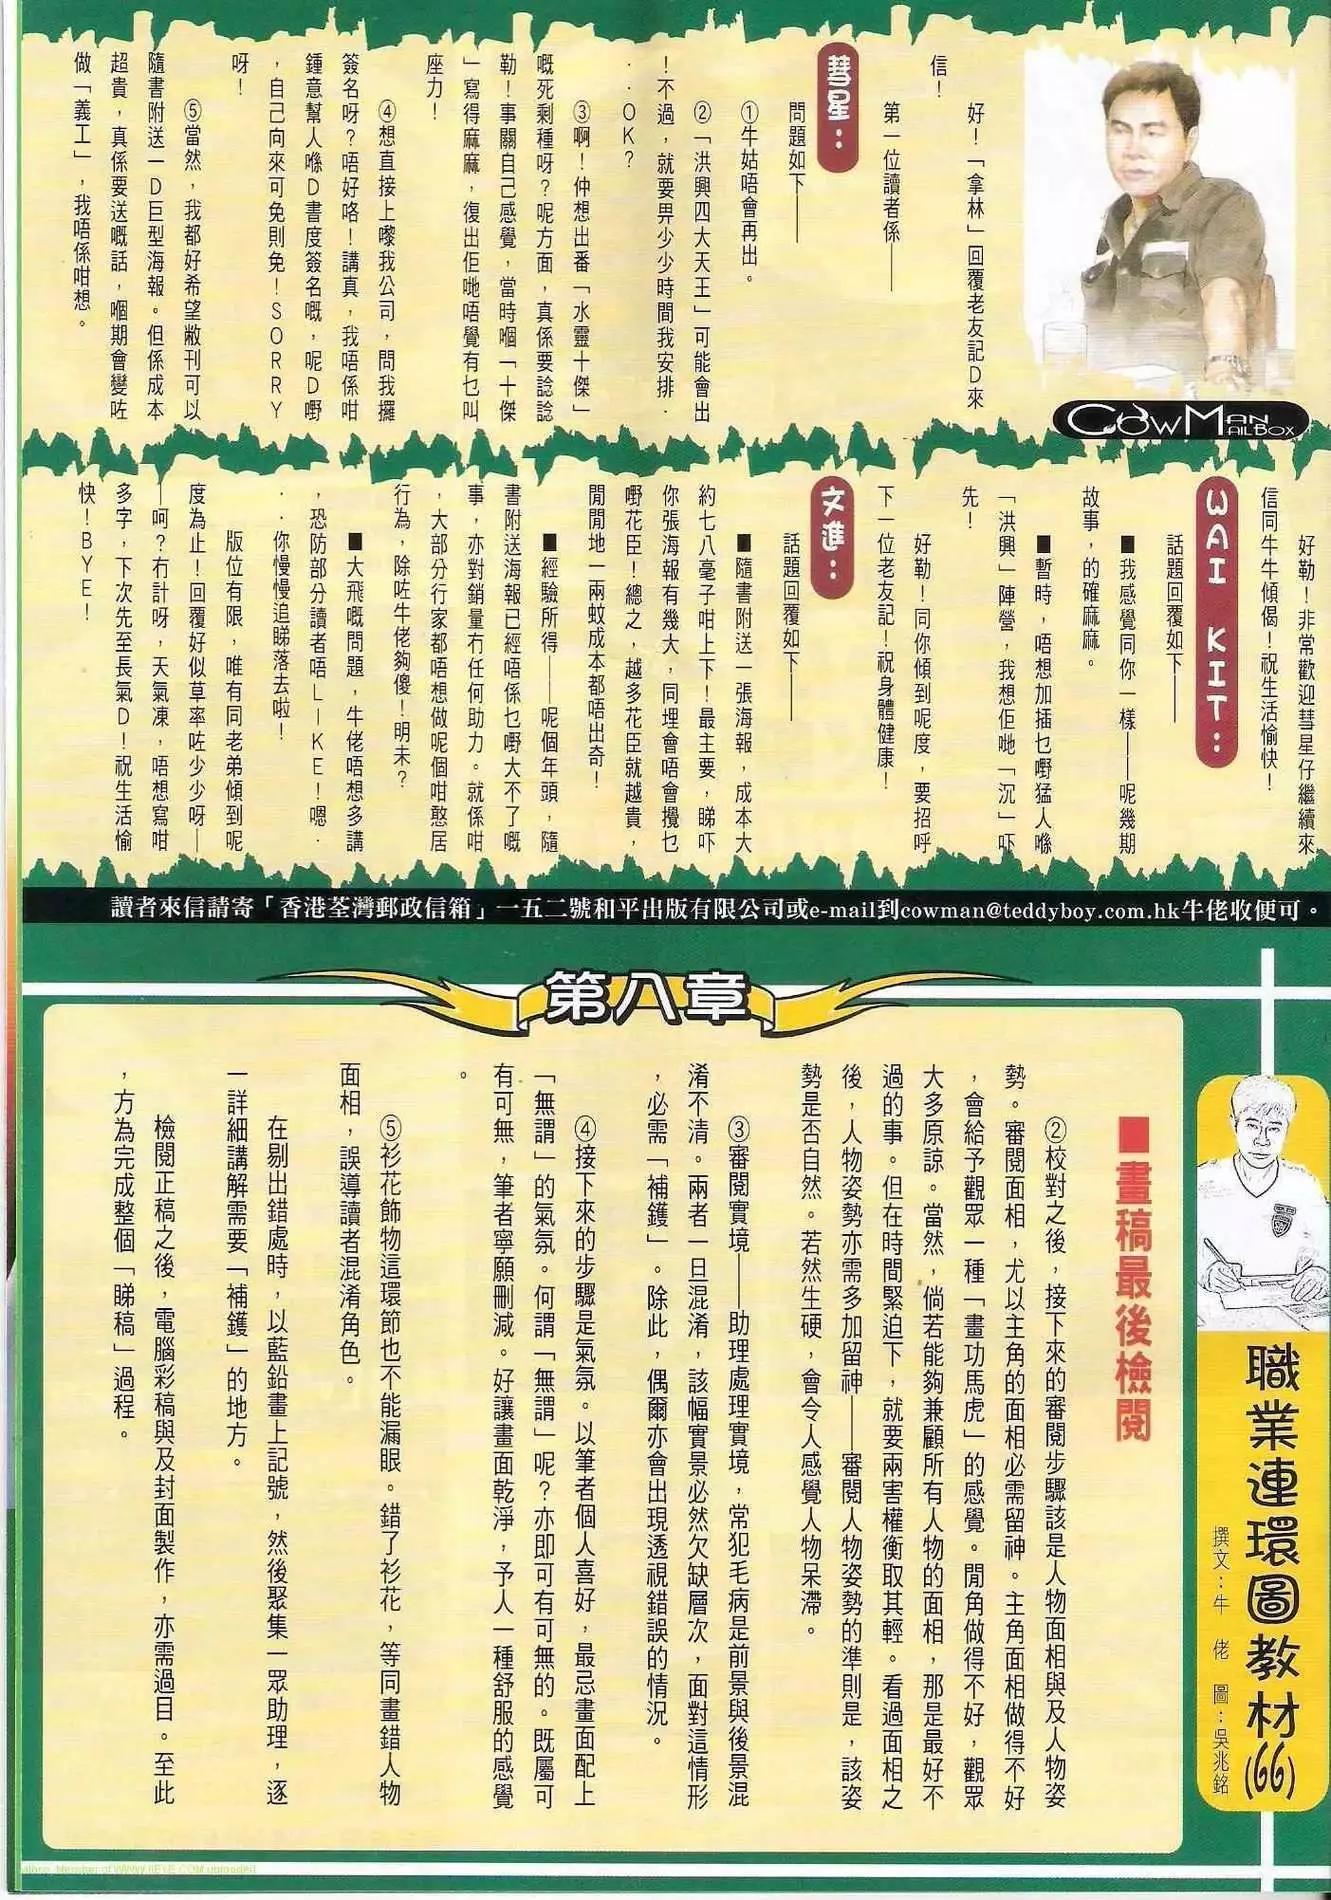 COWMAN MAILBOX
好！「拿林」回覆老友記D來
信！
第一位讀者係——
彗星：
問題如下——
①牛姑唔會再出。
②「洪興四大天王」可能會出
！不過，就要畀少少時間我安排．
．．OK？
③啊！仲想出番「水靈十傑」
嘅死剩種呀？呢方面，真係要諗諗
勒！事關自己感覺，當時嗰「十傑
」寫得麻麻，復出佢哋唔覺有乜叫
座力！
④想直接上嚟我公司，問我攞
簽名呀？唔好咯！講真，我唔係咁
鍾意幫人喺D書度簽名嘅，呢D嘢
，自己向來可免則免！SORRY
呀！
⑤當然，我都好希望敝刊可以
隨書附送一D巨型海報。但係成本
超貴，真係要送嘅話，嗰期會變咗
做「義工」，我唔係咁想。
好勒！非常歡迎彗星仔繼續來
信同牛牛傾偈！祝生活愉快！
WAI KIT：
話題回覆如下——
■我感覺同你一樣——呢幾期
故事，的確麻麻。
■暫時，唔想加插乜嘢猛人喺
「洪興」陣營，我想佢哋「沉」吓
先！
好勒！同你傾到呢度，要招呼
下一位老友記！祝身體健康！
文進：
話題回覆如下——
■隨書附送一張海報，成本大
約七八毫子咁上下！最主要，睇吓
你張海報有幾大，同埋會唔會攪乜
嘢花臣！總之，越多花臣就越貴，
閒閒地一兩蚊成本都唔出奇！
■經驗所得——呢個年頭，隨
書附送海報已經唔係乜嘢大不了嘅
事，亦對銷量冇任何助力。就係咁
，大部分行家都唔想做呢個咁憨居
行為，除咗牛佬夠傻！明未？
■大飛嘅問題，牛佬唔想多講
，恐防部分讀者唔LIKE！嗯．
．．你慢慢追睇落去啦！
版位有限，唯有同老弟傾到呢
度為止！回覆好似草率咗少少呀—
—呵？冇計呀，天氣凍，唔想寫咁
多字，下次先至長氣D！祝生活愉
快！BYE！
讀者來信請寄「香港荃灣郵政信箱」一五二號和平出版有限公司或e-mail到cowman@teddyboy.com.hk牛佬收便可。
第八章
職業連環圖教材(66)
撰文：牛 佬 圖：吳兆銘
■畫稿最後檢閱
②校對之後，接下來的審閱步驟該是人物面相與及人物姿
勢。審閱面相，尤以主角的面相必需留神。主角面相做得不好
，會給予觀眾一種「畫功馬虎」的感覺。閒角做得不好，觀眾
大多原諒。當然，倘若能夠兼顧所有人物的面相，那是最好不
過的事。但在時間緊迫下，就要兩害權衡取其輕。看過面相之
後，人物姿勢亦需多加留神——審閱人物姿勢的準則是，該姿
勢是否自然。若然生硬，會令人感覺人物呆滯。
③審閱實境——助理處理實境，常犯毛病是前景與後景混
淆不清。兩者一旦混淆，該幅實景必然欠缺層次，面對這情形
，必需「補鑊」。除此，偶爾亦會出現透視錯誤的情況。
④接下來的步驟是氣氛。以筆者個人喜好，最忌畫面配上
「無謂」的氣氛。何謂「無謂」呢？亦即可有可無的。既屬可
有可無，筆者寧願刪減。好讓畫面乾淨，予人一種舒服的感覺
。
⑤衫花飾物這環節也不能漏眼。錯了衫花，等同畫錯人物
面相，誤導讀者混淆角色。
在剔出錯處時，以藍鉛畫上記號，然後聚集一眾助理，逐
一詳細講解需要「補鑊」的地方。
檢閱正稿之後，電腦彩稿與及封面製作，亦需過目。至此
，方為完成整個「睇稿」過程。